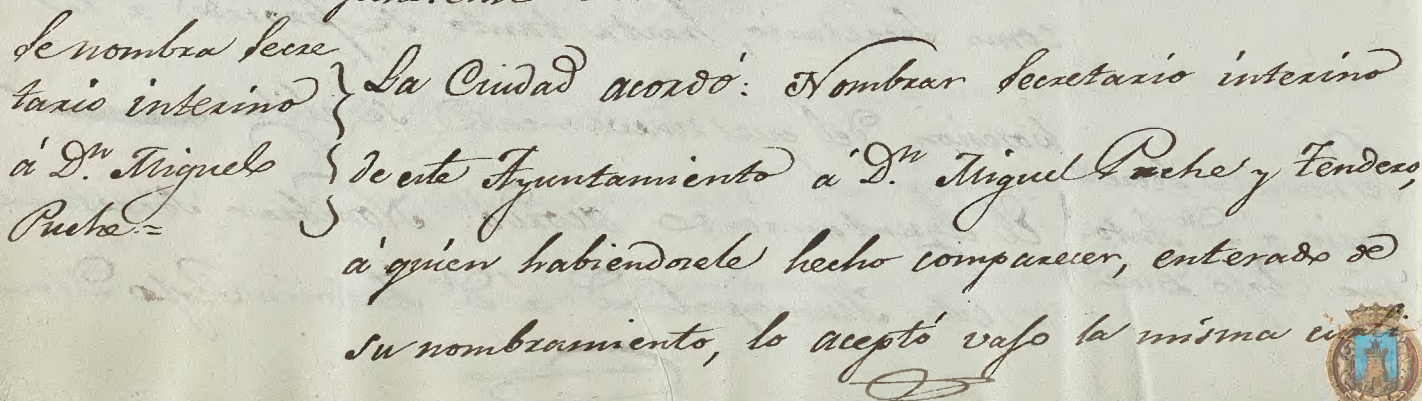 Se nombra Secre
tario interino
á D.n Miguel
Puche=
La Ciudad acordó: Nombrar Secretario interino
de este Ayuntamiento á D.n Miguel Puche y Tendero,
á quien habiendosele hecho comparecer, enterado de
su nombramiento, lo aceptó vajo la misma